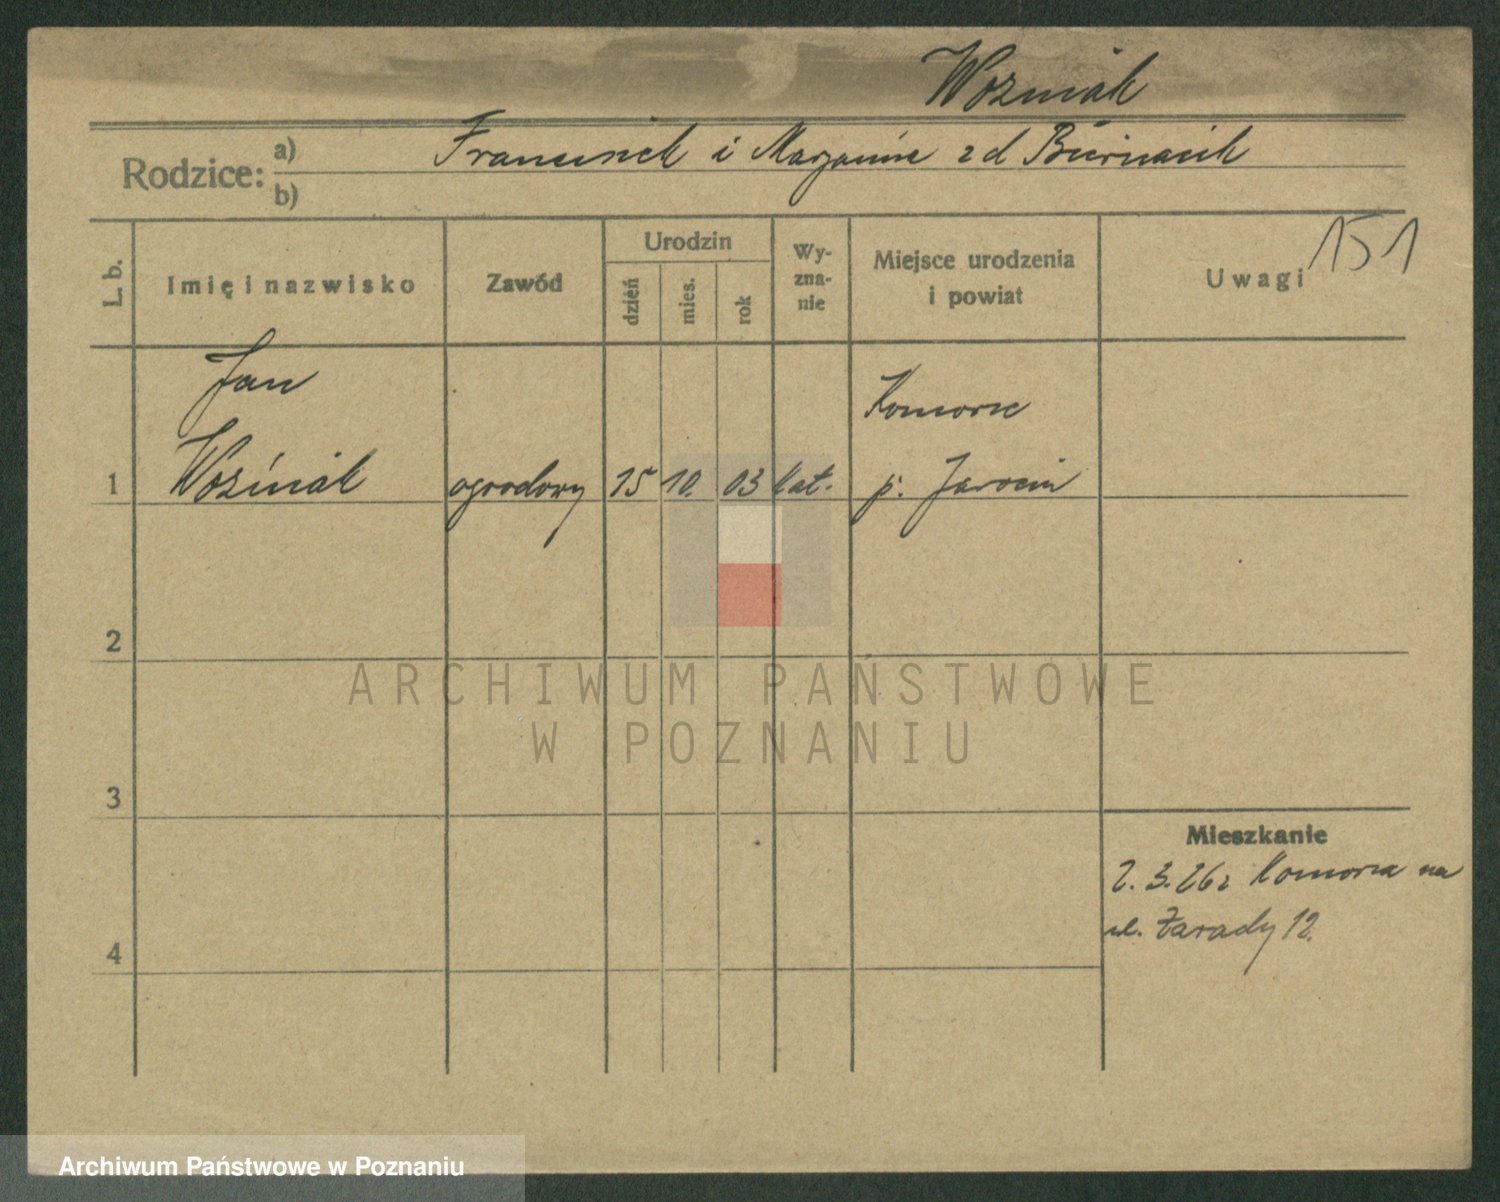 Woźniak
Rodzice: a) Franciszek i Marjanna z d Biernacik
b)
151
L. b. Imię i nazwisko Zawód Urodzin dzień mies. rok Wyznanie Miejsce urodzenia i powiat Uwagi
Jan
Komorze
1 Woźniak ogrodowy 15 10. 03 kat. p. Jarocin
2
ARCHIWUM PAŃSTWOWE
W POZNANIU
3
Mieszkanie
2. 3. 26 z Komorza na
ul. Zarady 12.
4
Archiwum Państwowe w Poznaniu